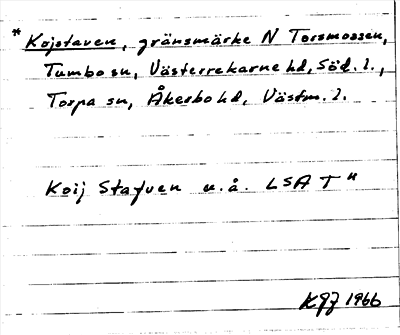 * Kojstaven, gränsmärke N Torsmossen,
Tumbo sn, Västerrekarne hd, Söd. l.,
Torpa sn, Åkerbo hd, Västm. l.
Koij Stafuen u.å. LSA T"
KGJ 1966